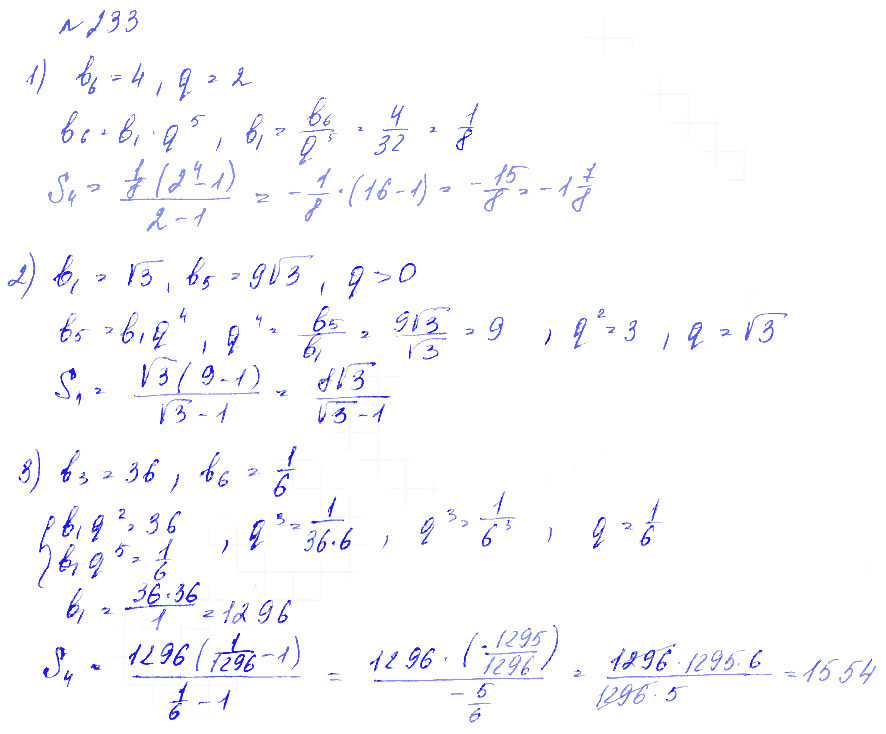 № 233
1) b₆ = 4, q = 2
b₆ = b₁ · q⁵, b₁ = b₆/q⁵ = 4/32 = 1/8
S₄ = (1/8 (2⁴-1))/(2-1) = -1/8 · (16-1) = -15/8 = -1 7/8
2) b₁ = √3, b₅ = 9√3, q > 0
b₅ = b₁q⁴, q⁴ = b₅/b₁ = 9√3/√3 = 9, q² = 3, q = √3
S₄ = (√3(9-1))/(√3-1) = 8√3/(√3-1)
3) b₃ = 36, b₆ = 1/6
{b₁q² = 36
{b₁q⁵ = 1/6, q³ = 1/(36·6), q³ = 1/6³, q = 1/6
b₁ = (36·36)/1 = 1296
S₄ = (1296(1/1296 - 1))/(1/6 - 1) = (1296 · (-1295/1296))/(-5/6) = (1296·1295·6)/(1296·5) = 1554